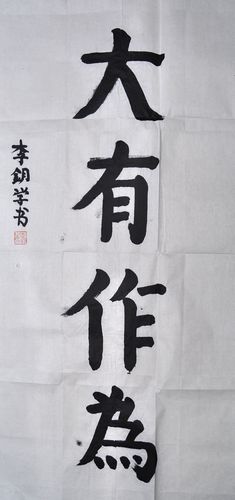 大有作為
李明学书